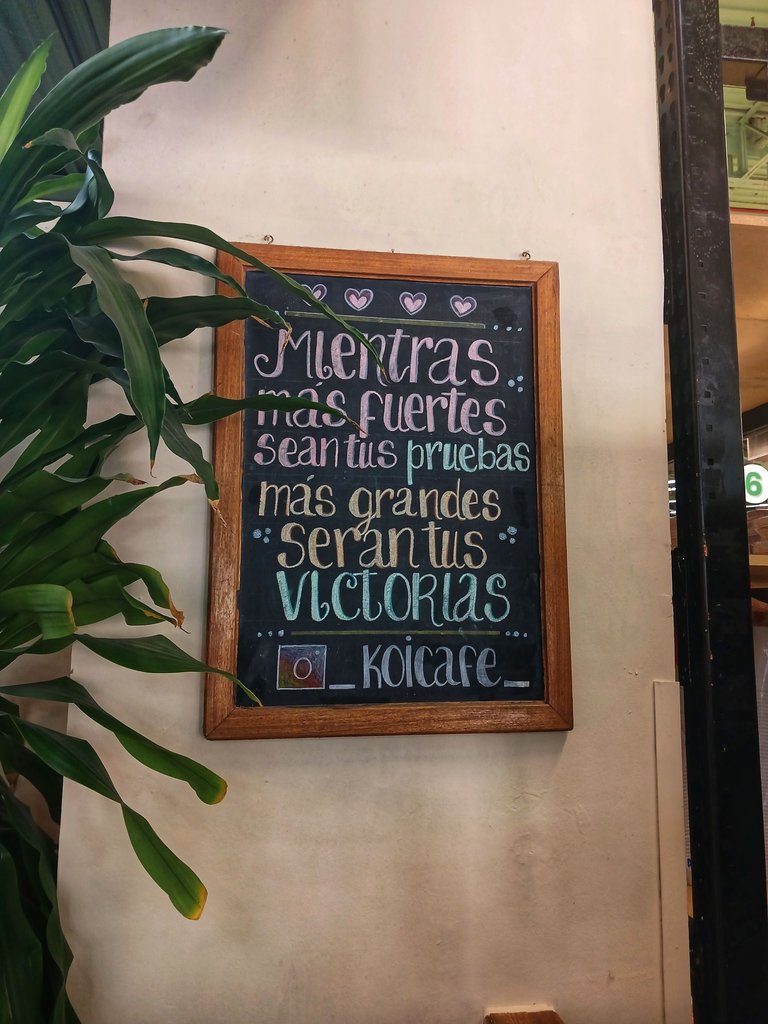 Mientras
más fuertes
sean tus pruebas
más grandes
seran tus
VICTORIAS
_KOICAFE_
6